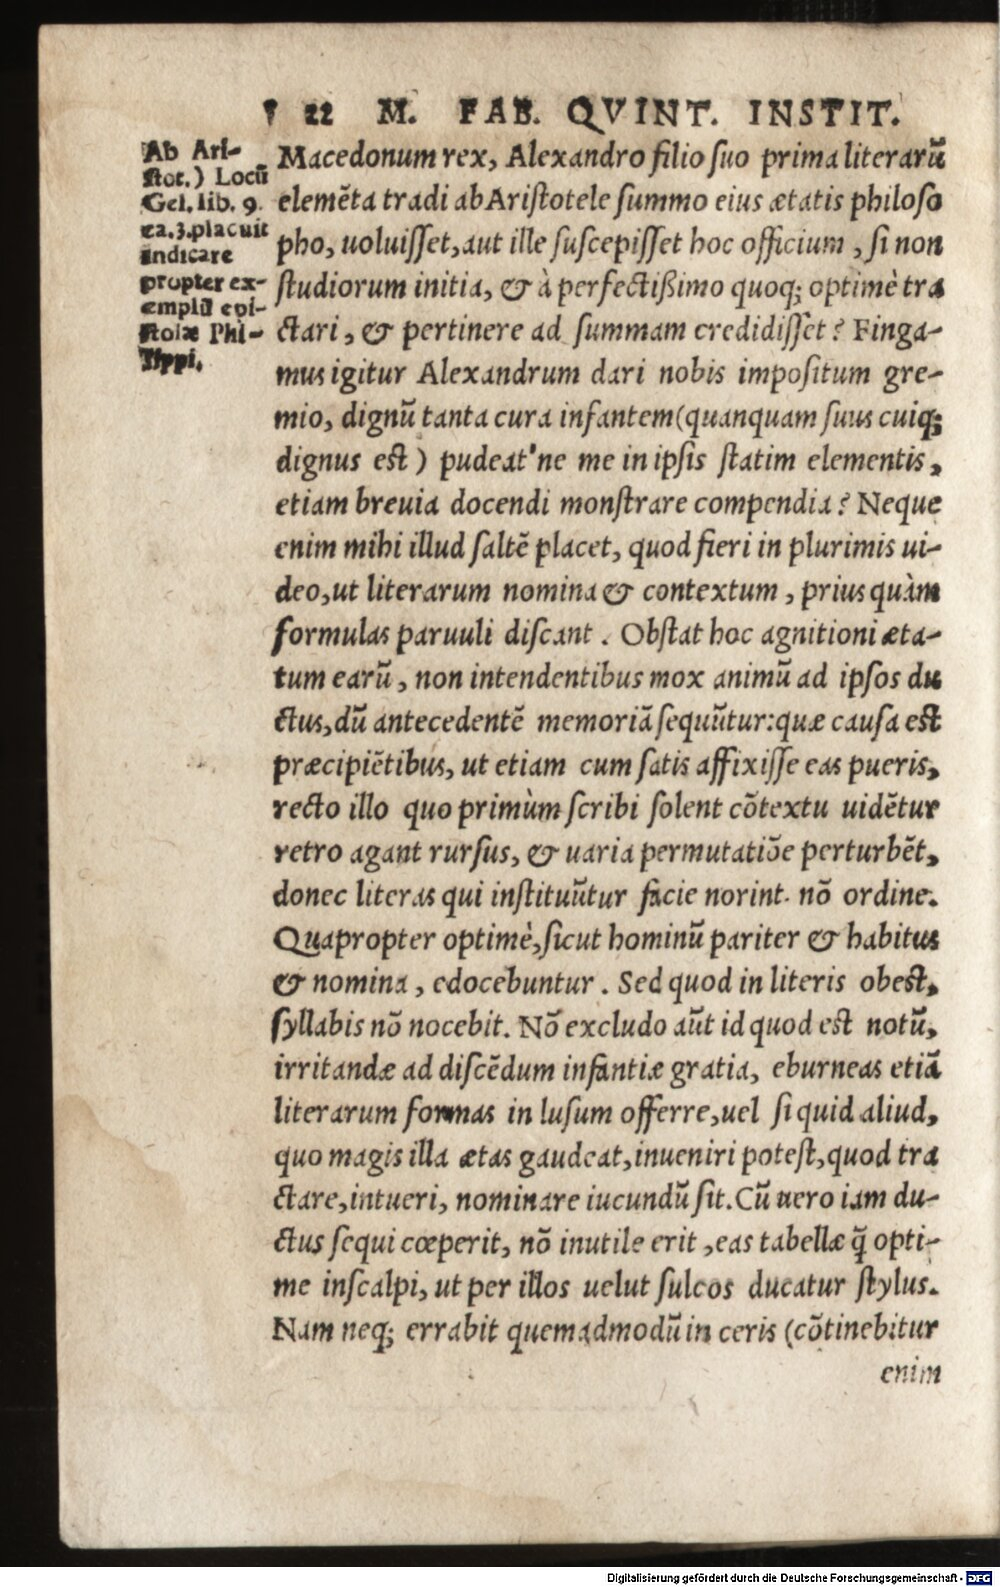 22 M. FAB. QVINT. INSTIT.
Ab Ari-
ſtot.) Locū
Gel. lib. 9.
ca.3.placuit
indicare
propter ex-
emplū epi-
ſtolæ Phi-
lippi.
Macedonum rex, Alexandro filio ſuo prima literarū
elemēta tradi ab Ariſtotele ſummo eius ætatis philoſo
pho, uoluiſſet, aut ille ſuſcepiſſet hoc officium, ſi non
ſtudiorum initia, & à perfectißimo quoq; optimè tra
ctari, & pertinere ad ſummam credidiſſet? Finga-
mus igitur Alexandrum dari nobis impoſitum gre-
mio, dignū tanta cura infantem (quanquam ſuus cuiq;
dignus eſt) pudeat'ne me in ipſis ſtatim elementis,
etiam breuia docendi monſtrare compendia? Neque
enim mihi illud ſaltē placet, quod fieri in plurimis ui-
deo, ut literarum nomina & contextum, prius quàm
formulas paruuli diſcant. Obſtat hoc agnitioni æta-
tum earū, non intendentibus mox animū ad ipſos du
ctus, dū antecedentē memoriā ſequūtur: quæ cauſa eſt
præcipiētibus, ut etiam cum ſatis affixiſſe eas pueris,
recto illo quo primùm ſcribi ſolent cōtextu uidētur
retro agant rurſus, & uaria permutatiōe perturbēt,
donec literas qui inſtituūtur facie norint. nō ordine.
Quapropter optimè, ſicut hominū pariter & habitus
& nomina, edocebuntur. Sed quod in literis obeſt,
ſyllabis nō nocebit. Nō excludo aūt id quod eſt notū,
irritandæ ad diſcēdum infantiæ gratia, eburneas etiā
literarum formas in luſum offerre, uel ſi quid aliud,
quo magis illa ætas gaudeat, inueniri poteſt, quod tra
ctare, intueri, nominare iucundū ſit. Cū uero iam du-
ctus ſequi cœperit, nō inutile erit, eas tabellæ q̄ opti-
me inſcalpi, ut per illos uelut ſulcos ducatur ſtylus.
Nam neq; errabit quemadmodū in ceris (cōtinebitur
enim
Digitalisierung gefördert durch die Deutsche Forschungsgemeinschaft - DFG